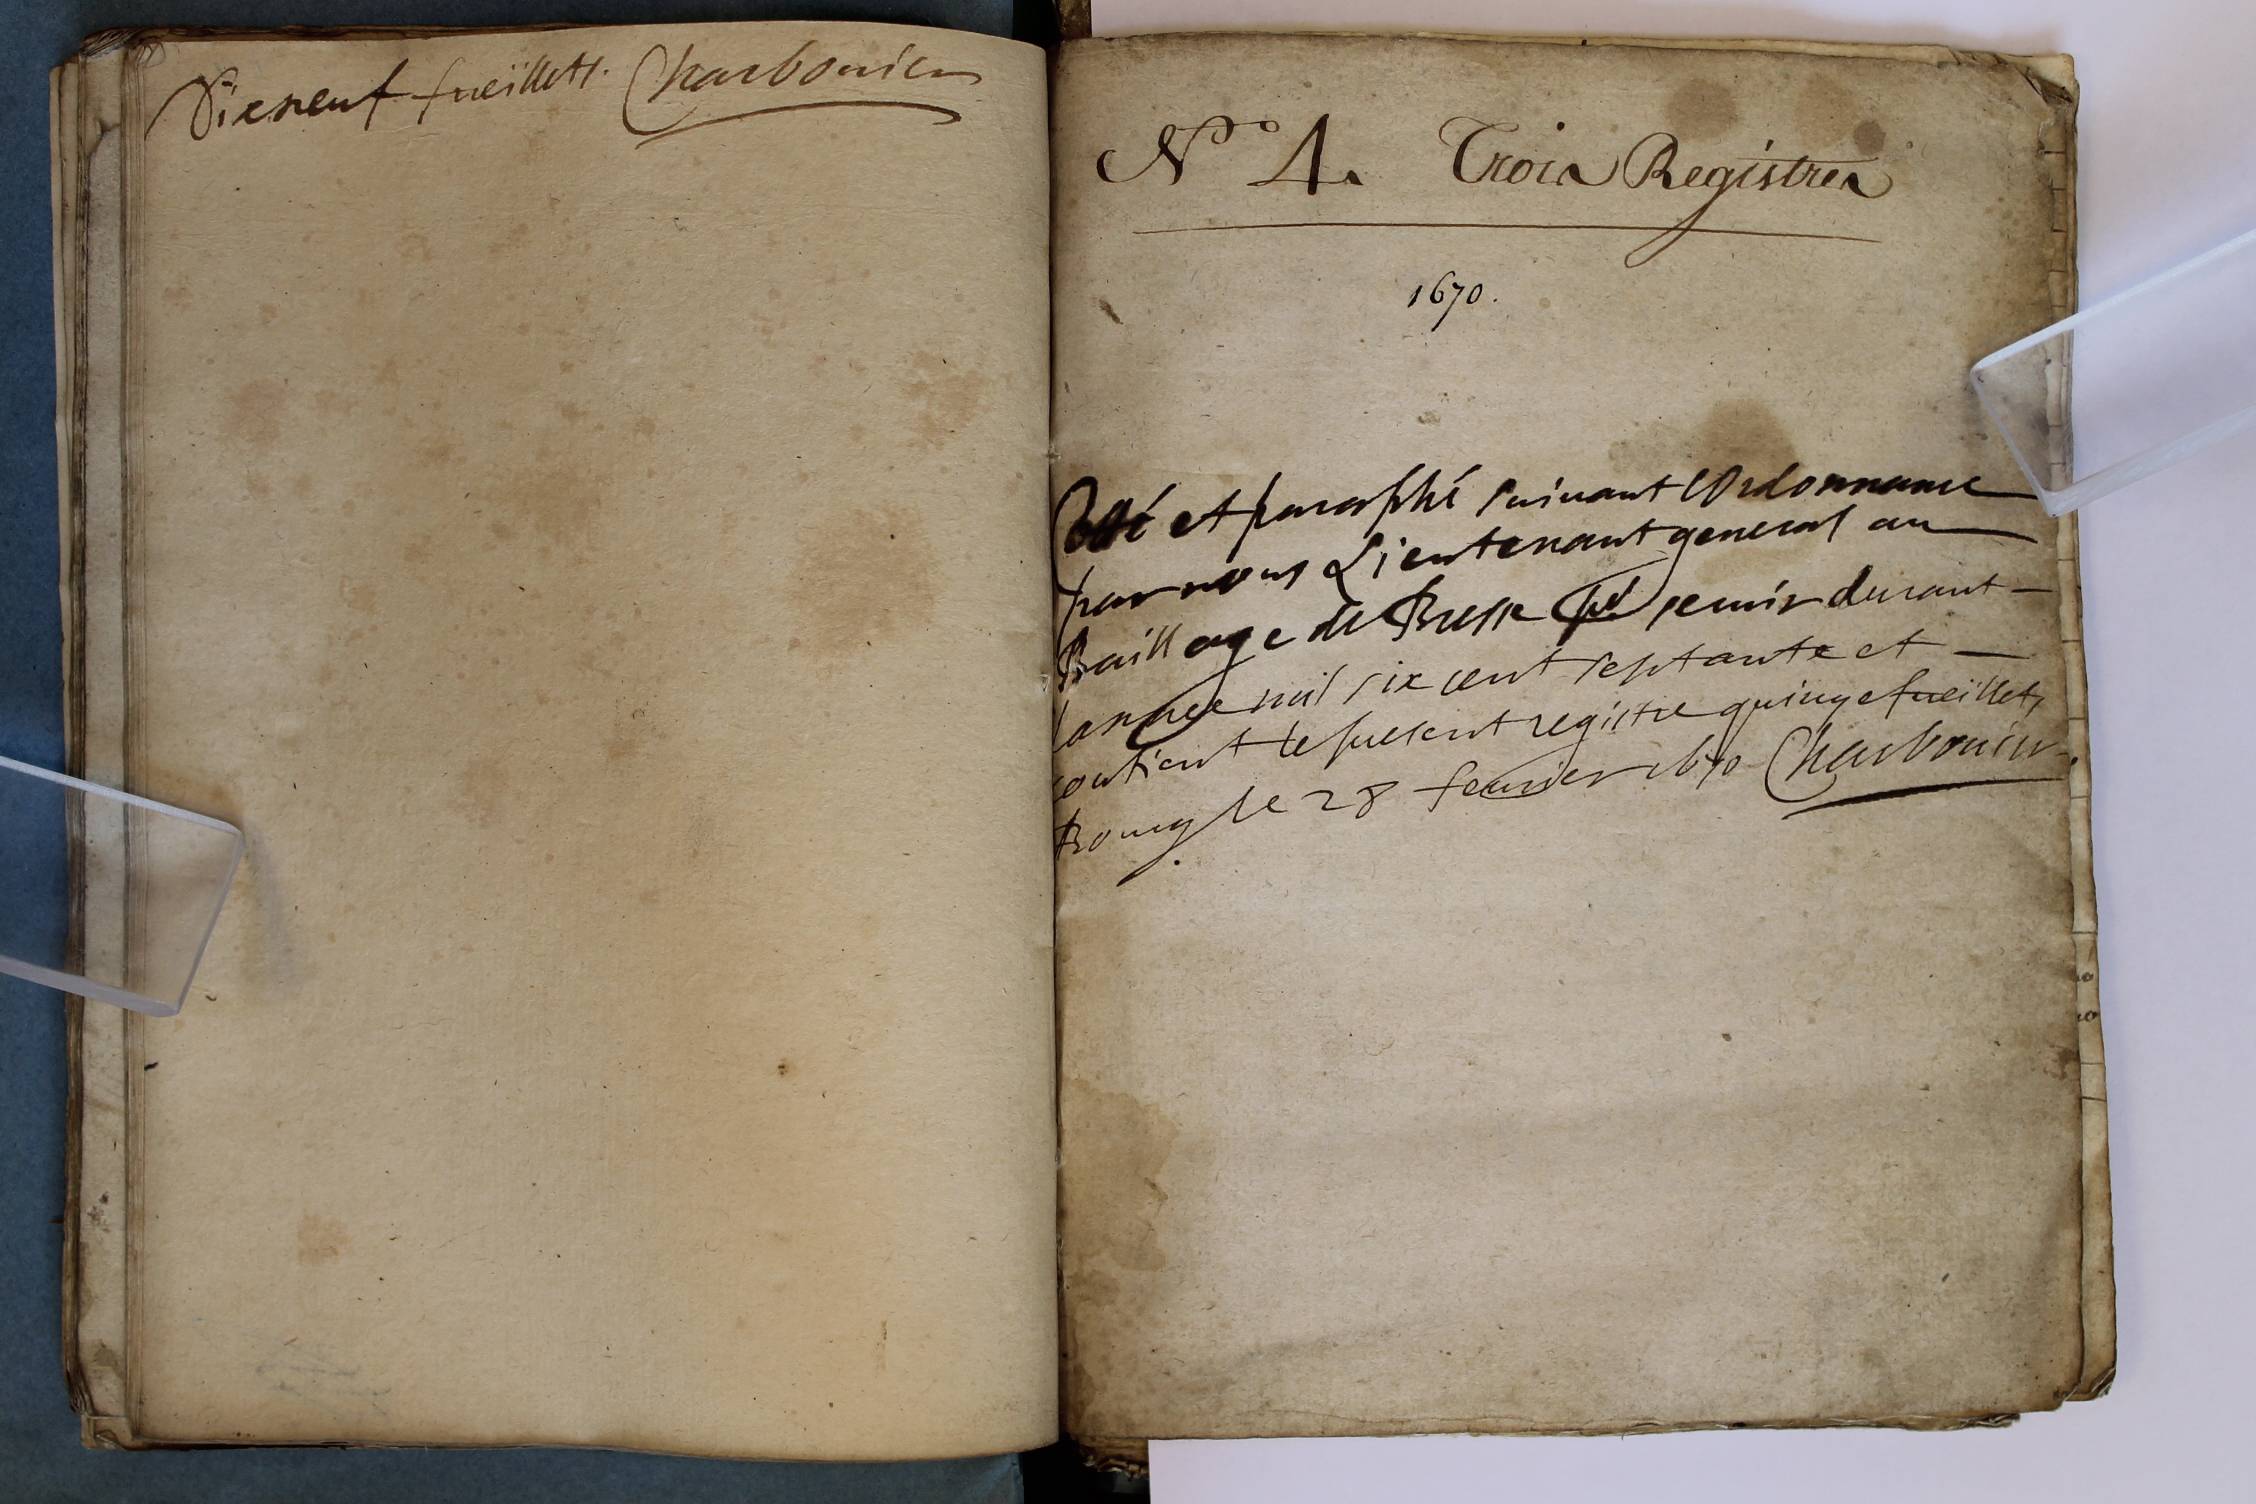 Dixneuf fueïllets. Charbonier
N° 4. Trois Registres
1670.
Cotté et paraphé suivant l'Ordonnance
par nous Lieutenant general au
Baillage de Bresse pour servir durant
lannee mil six cent septante et
contient le present registre quinze fueïllets
Bourg le 28 feurier 1670 Charbonier